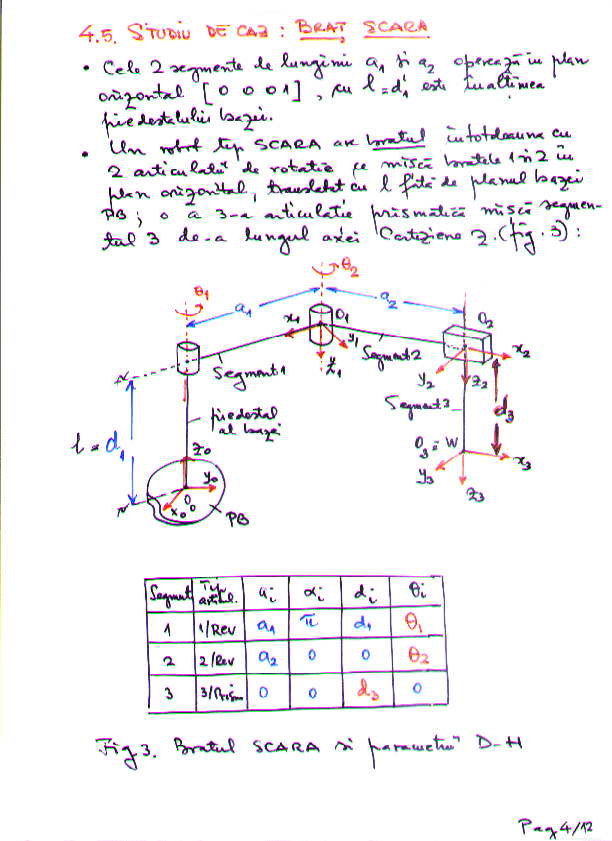 4.5. STUDIU DE CAZ : BRAȚ SCARA
• Cele 2 segmente de lungimi a1 și a2 operează în plan
orizontal [0 0 0 1], cu l=d1 este înălțimea
piedestalului bazei.
• Un robot tip SCARA are brațul întotdeauna cu
2 articulații de rotație ce mișcă brațele 1 și 2 în
plan orizontal, translatat cu l față de planul bazei
PB; o a 3-a articulație prismatică mișcă segmen-
tul 3 de-a lungul axei Carteziene z. (fig. 3) :
θ2
θ1
a1
a2
x1
O1
y1
z1
O2
Segment 1
Segment 2
x2
y2
z2
Segment 3
d3
piedestal
al bazei
l = d1
z0
y0
O0
x0
PB
O3 ≡ W
x3
y3
z3
Segment Tip articul. ai αi di θi
1 1/Rev a1 π d1 θ1
2 2/Rev a2 0 0 θ2
3 3/Prism 0 0 d3 0
Fig 3. Brațul SCARA și parametrii D-H
Pag 4/12